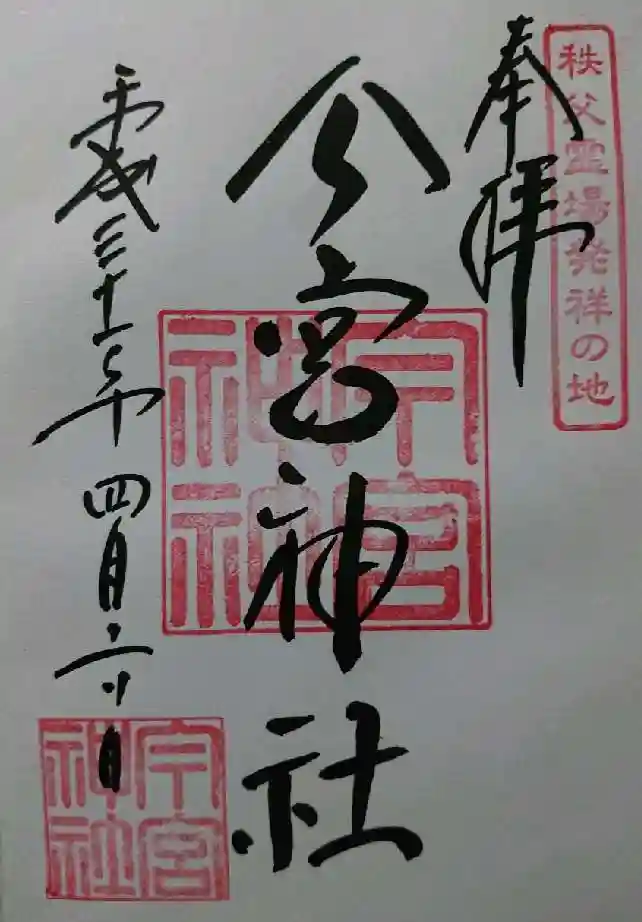 秩父霊場発祥の地
奉拝
今宮神社
今宮
神社
平成三十一年四月六日
今宮
神社